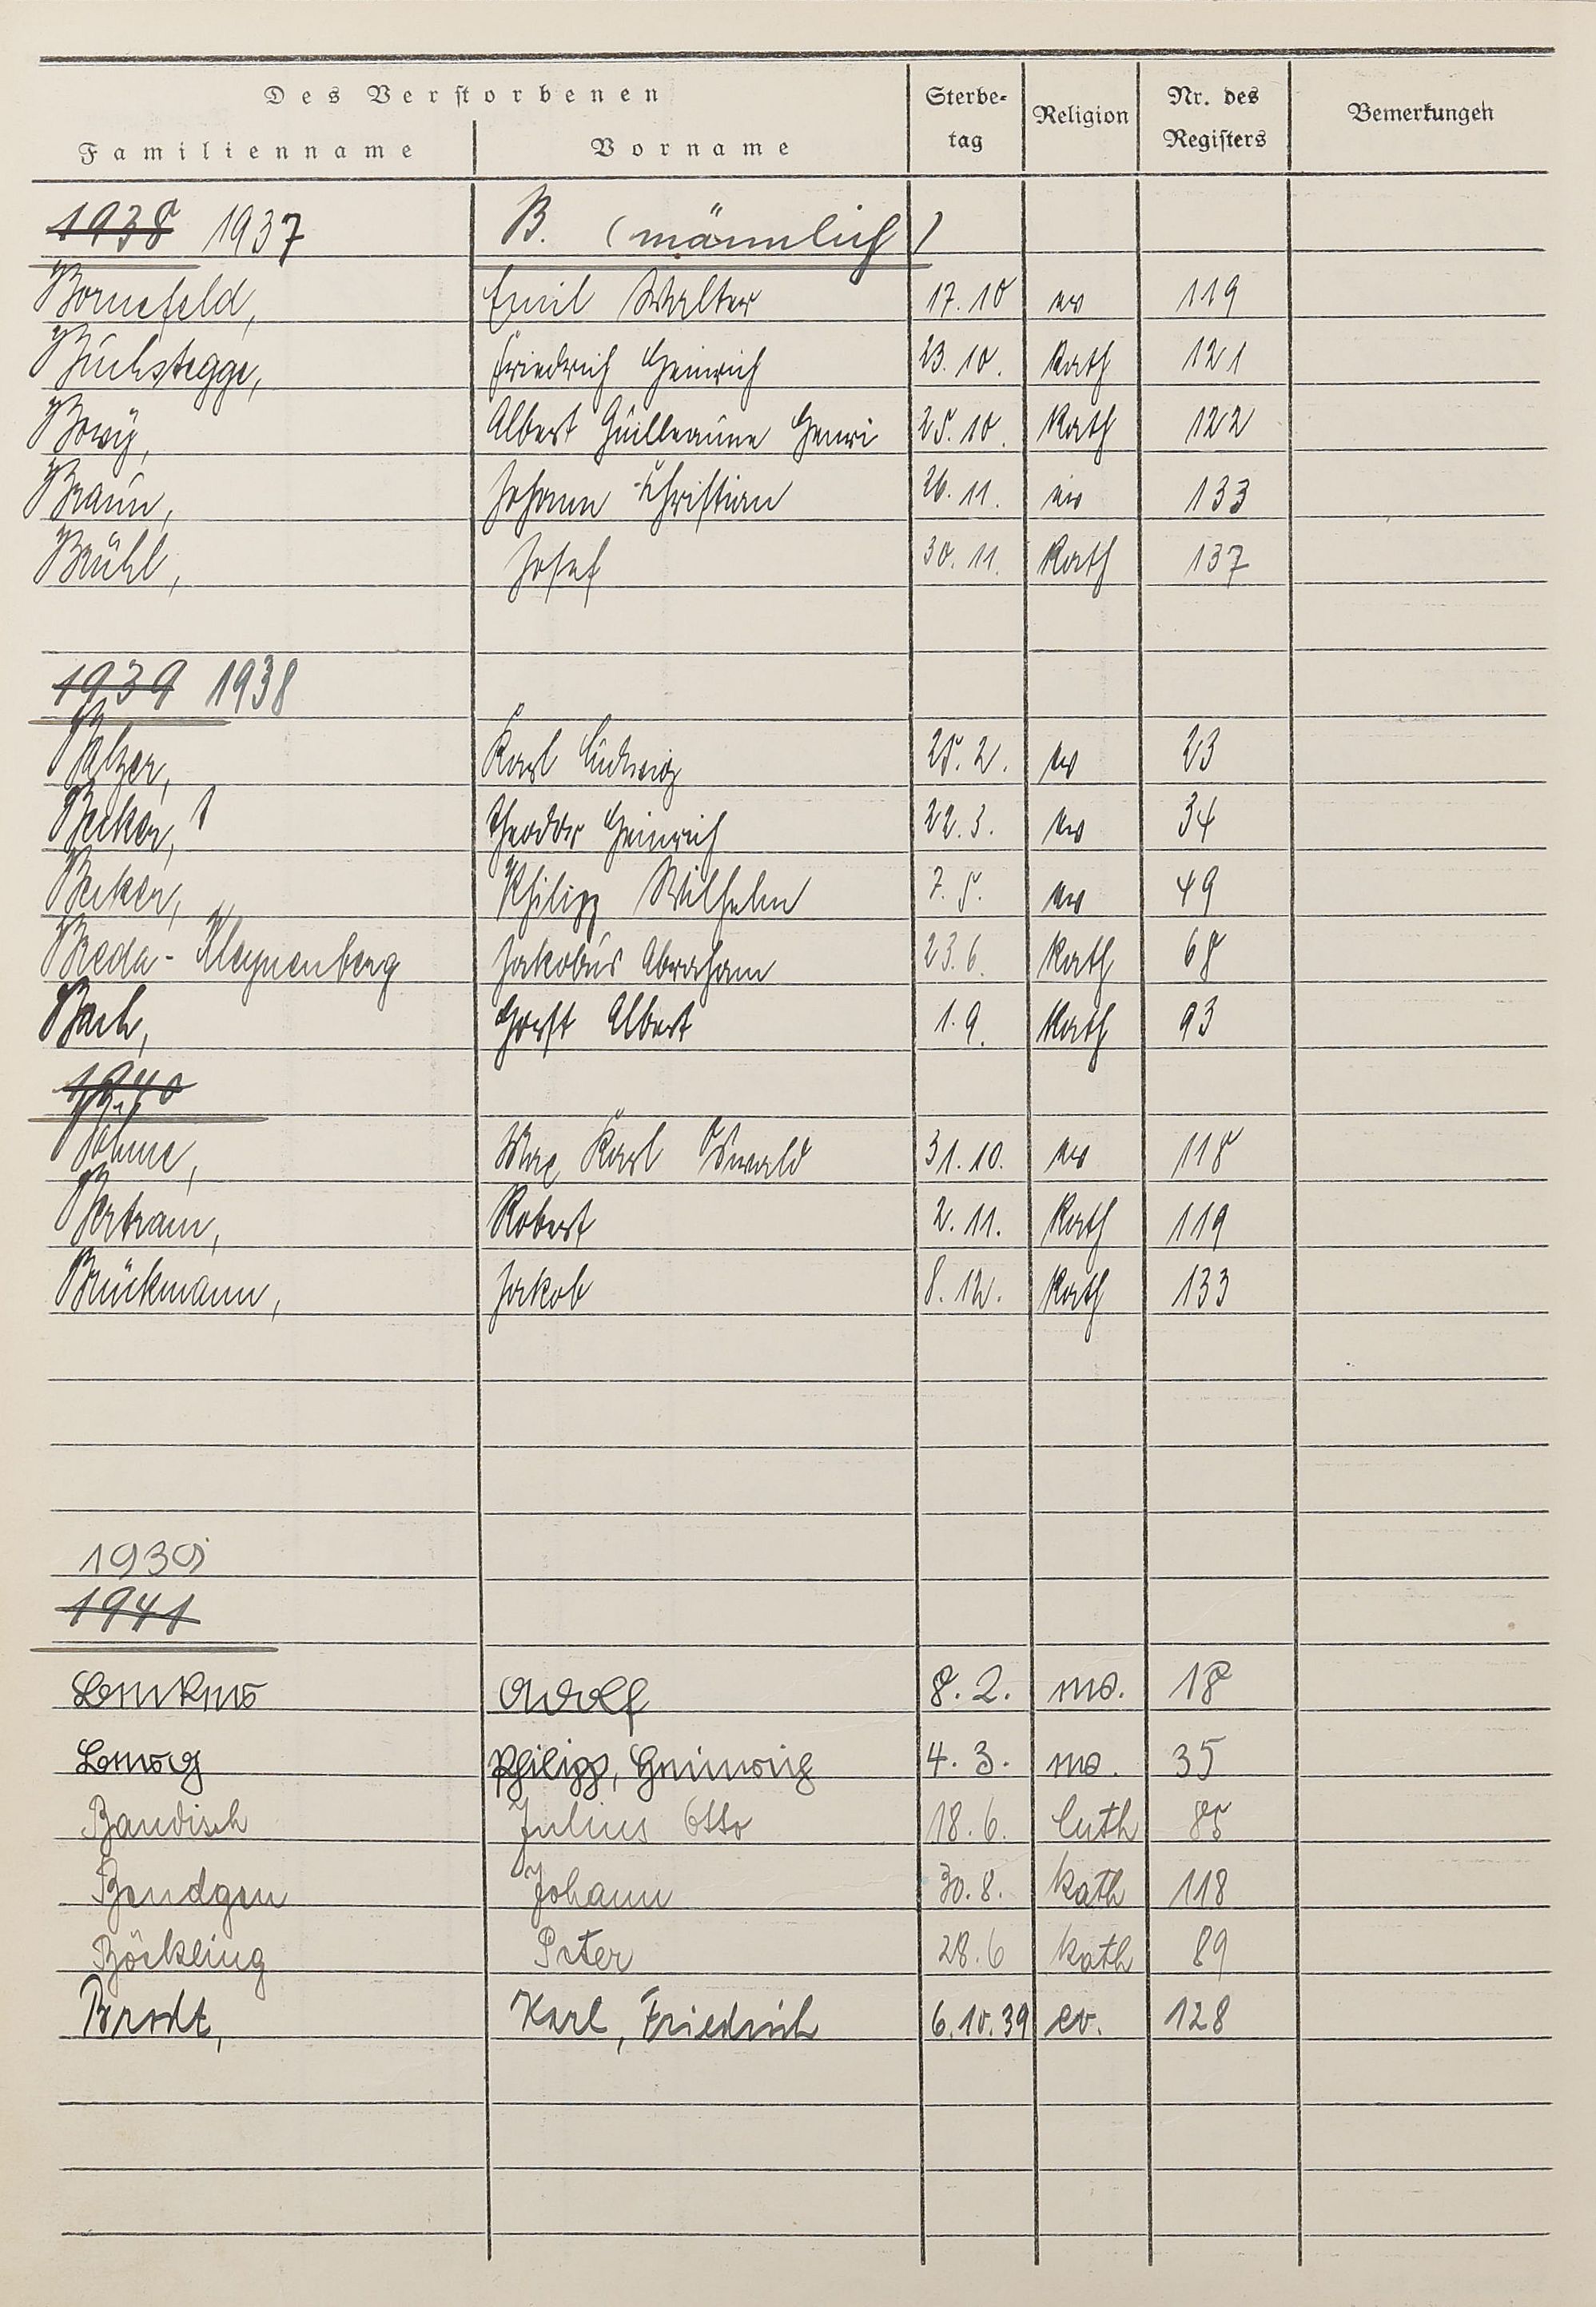 Des Verstorbenen
Familienname Vorname Sterbe-tag Religion Nr. des Registers Bemerkungen
1938 1937 B. (männlich)
Bornefeld, Emil Walter 17.10 ev 119
Buchstegge, Friedrich Heinrich 23.10. Kath 121
Albert Guilleaume Henri 25.10. Kath 122
Braun, Johann Christian 26.11. ev 133
Brühl, Josef 30.11. Kath 137
1939 1938
Balzer, Karl Ludwig 25.2. ev 23
Becker, Theodor Heinrich 22.3. ev 34
Becker, Philipp Wilhelm 7.5. ev 49
Breda-Kleynenberg Jakobus Abraham 23.6. Kath 68
Bach, Horst Albert 1.9. Kath 93
1940
Böhme, Max Karl Oswald 31.10. ev 118
Bertram, Robert 2.11. Kath 119
Brückmann, Jakob 8.12. Kath 133
1939
1941
Adolf 8.2. ev. 18
Philipp, Heinrich 4.3. ev. 35
Baudisch Julius Otto 18.6. luth 85
Bendgen Johann 30.8. kath 118
Böckling Peter 28.6 kath 89
Brodt, Karl, Friedrich 6.10.39 ev. 128